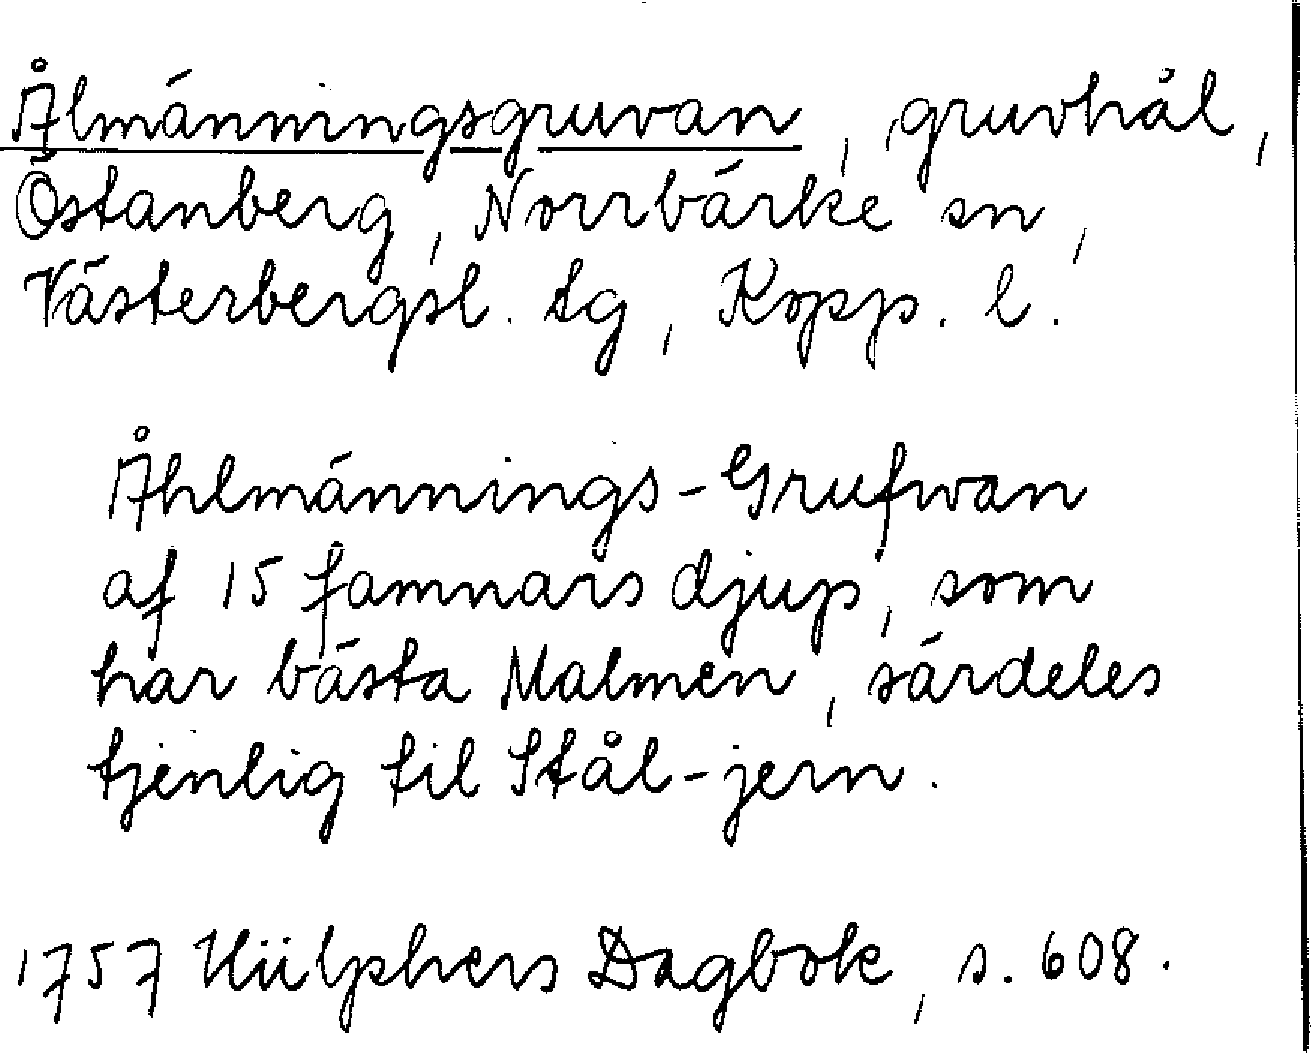 Ålmänningsgruvan, gruvhål,
Östanberg, Norrbärke sn,
Västerbergsl. tg, Kopp. l.
Åhlmännings-Grufwan
af 15 famnars djup, som
har bästa Malmen, särdeles
tjenlig til Stål-jern.
1757 Hülphers Dagbok, s. 608.